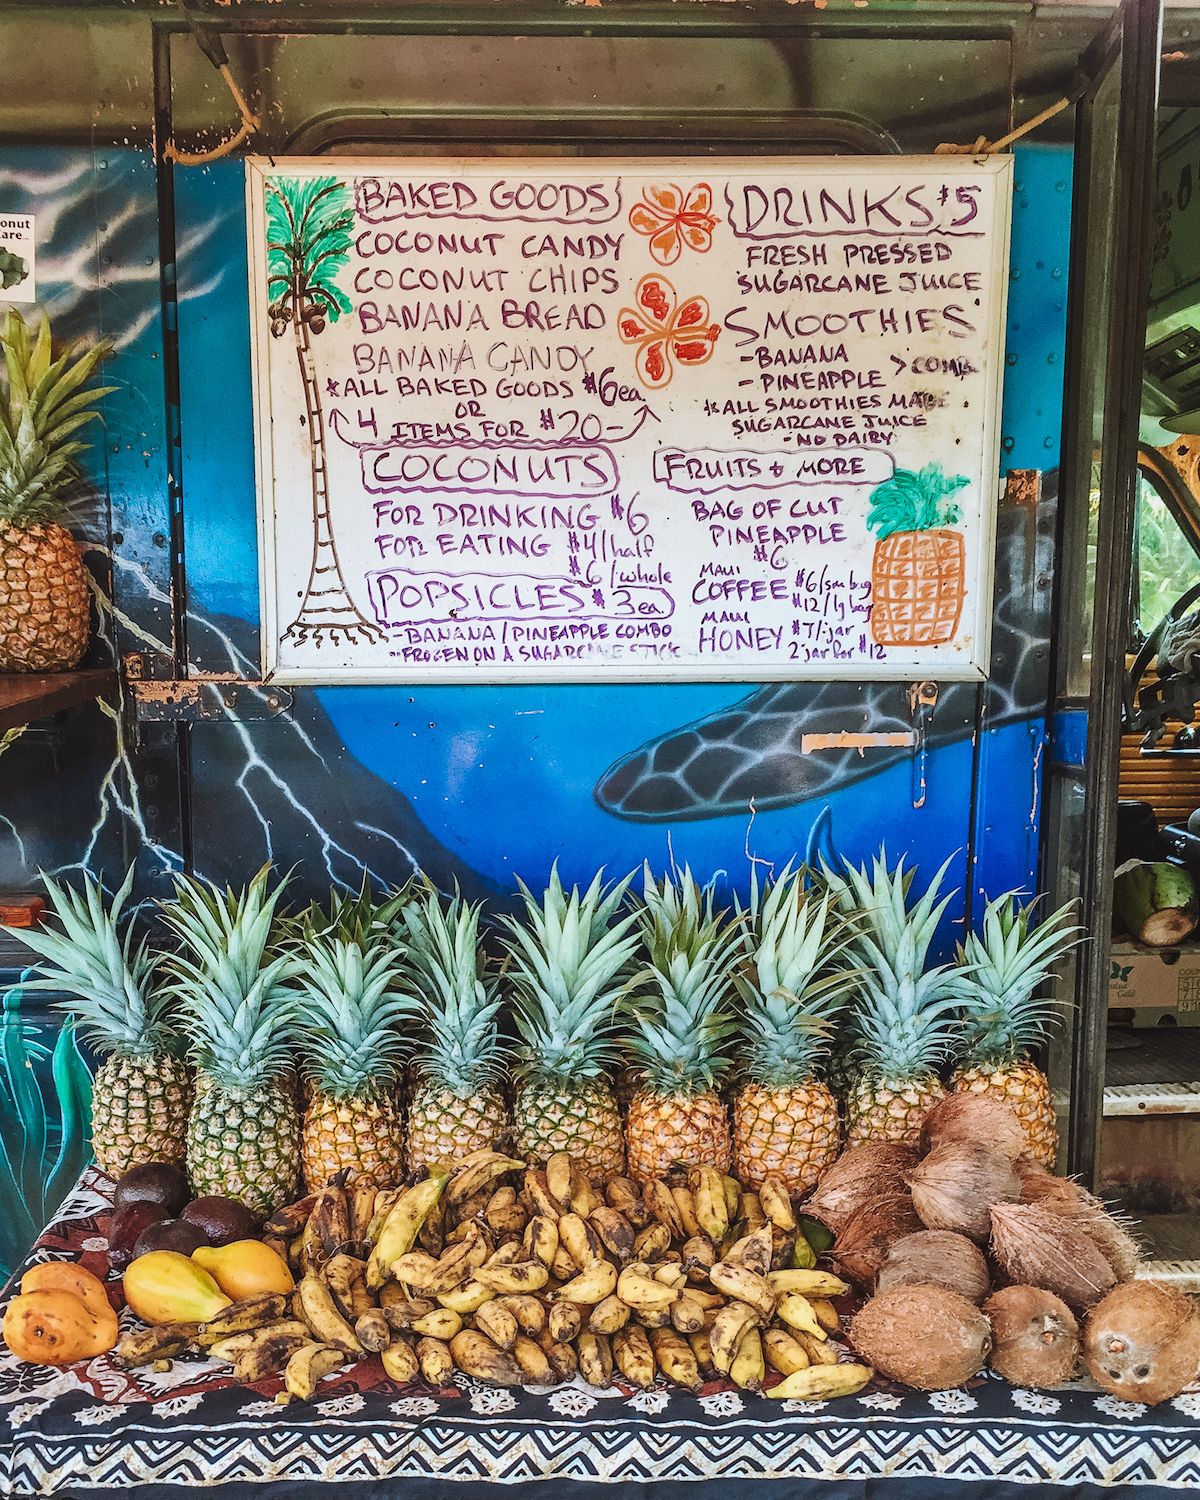 BAKED GOODS
COCONUT CANDY
COCONUT CHIPS
BANANA BREAD
BANANA CANDY
*ALL BAKED GOODS $6ea.
OR
4 ITEMS FOR $20-
COCONUTS
FOR DRINKING $6
FOR EATING $4/half
$6/whole
POPSICLES $3ea.
-BANANA/PINEAPPLE COMBO
-FROZEN ON A SUGARCANE STICK
DRINKS $5
FRESH PRESSED
SUGARCANE JUICE
SMOOTHIES
-BANANA
-PINEAPPLE
>COMBO
*ALL SMOOTHIES MADE
SUGARCANE JUICE
-NO DAIRY
FRUITS + MORE
BAG OF CUT
PINEAPPLE
$6
MAUI
COFFEE $6/sm bag
$12/lg bag
MAUI
HONEY $7/jar
2 jar for $12
onut
are
Gold